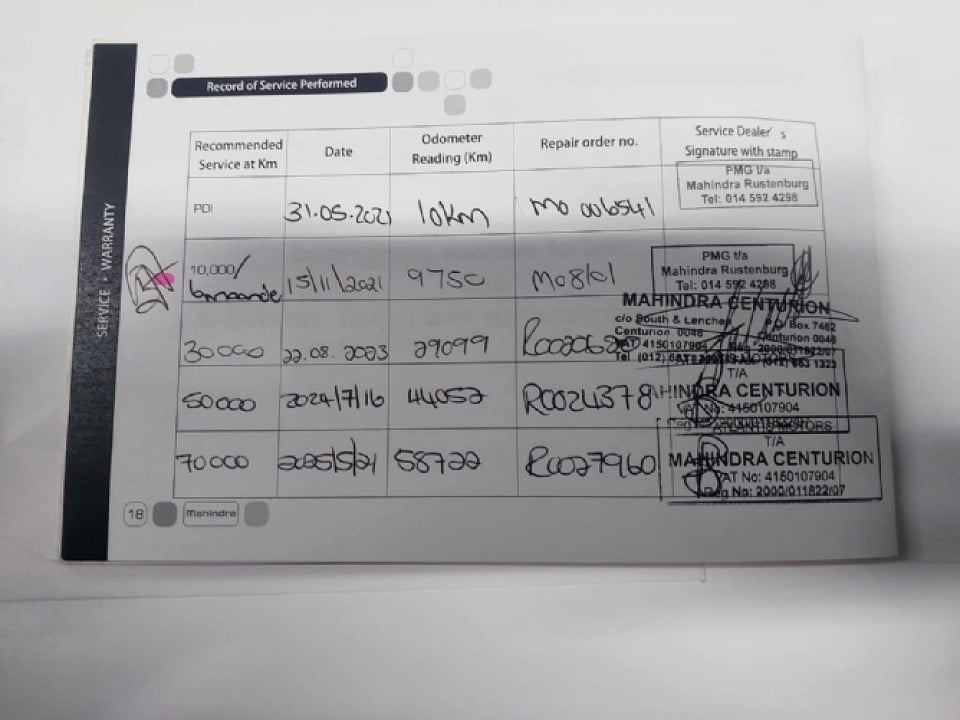 Record of Service Performed
SERVICE • WARRANTY
Recommended Service at Km
Date
Odometer Reading (Km)
Repair order no.
Service Dealer's Signature with stamp
PMG t/a
Mahindra Rustenburg
Tel: 014 592 4298
PDI
31.05.2021
10km
MO 006541
10,000/
15/11/2021
9750
PMG t/a
Mahindra Rustenburg
Tel: 014 592 4298
MAHINDRA CENTURION
c/o South & Lenchen
P O Box 7462
Centurion 0046
Centurion 0046
VAT 4150107904
Reg: 2000/011822/07
30000
22.08.2023
29099
T/A
MAHINDRA CENTURION
VAT No: 4150107904
50000
2024/7/16
44052
R0024378
ATLANTIS MOTORS
T/A
MAHINDRA CENTURION
VAT No: 4150107904
Reg No: 2000/011822/07
70000
2025/5/21
58722
R0027960
18
Mahindra